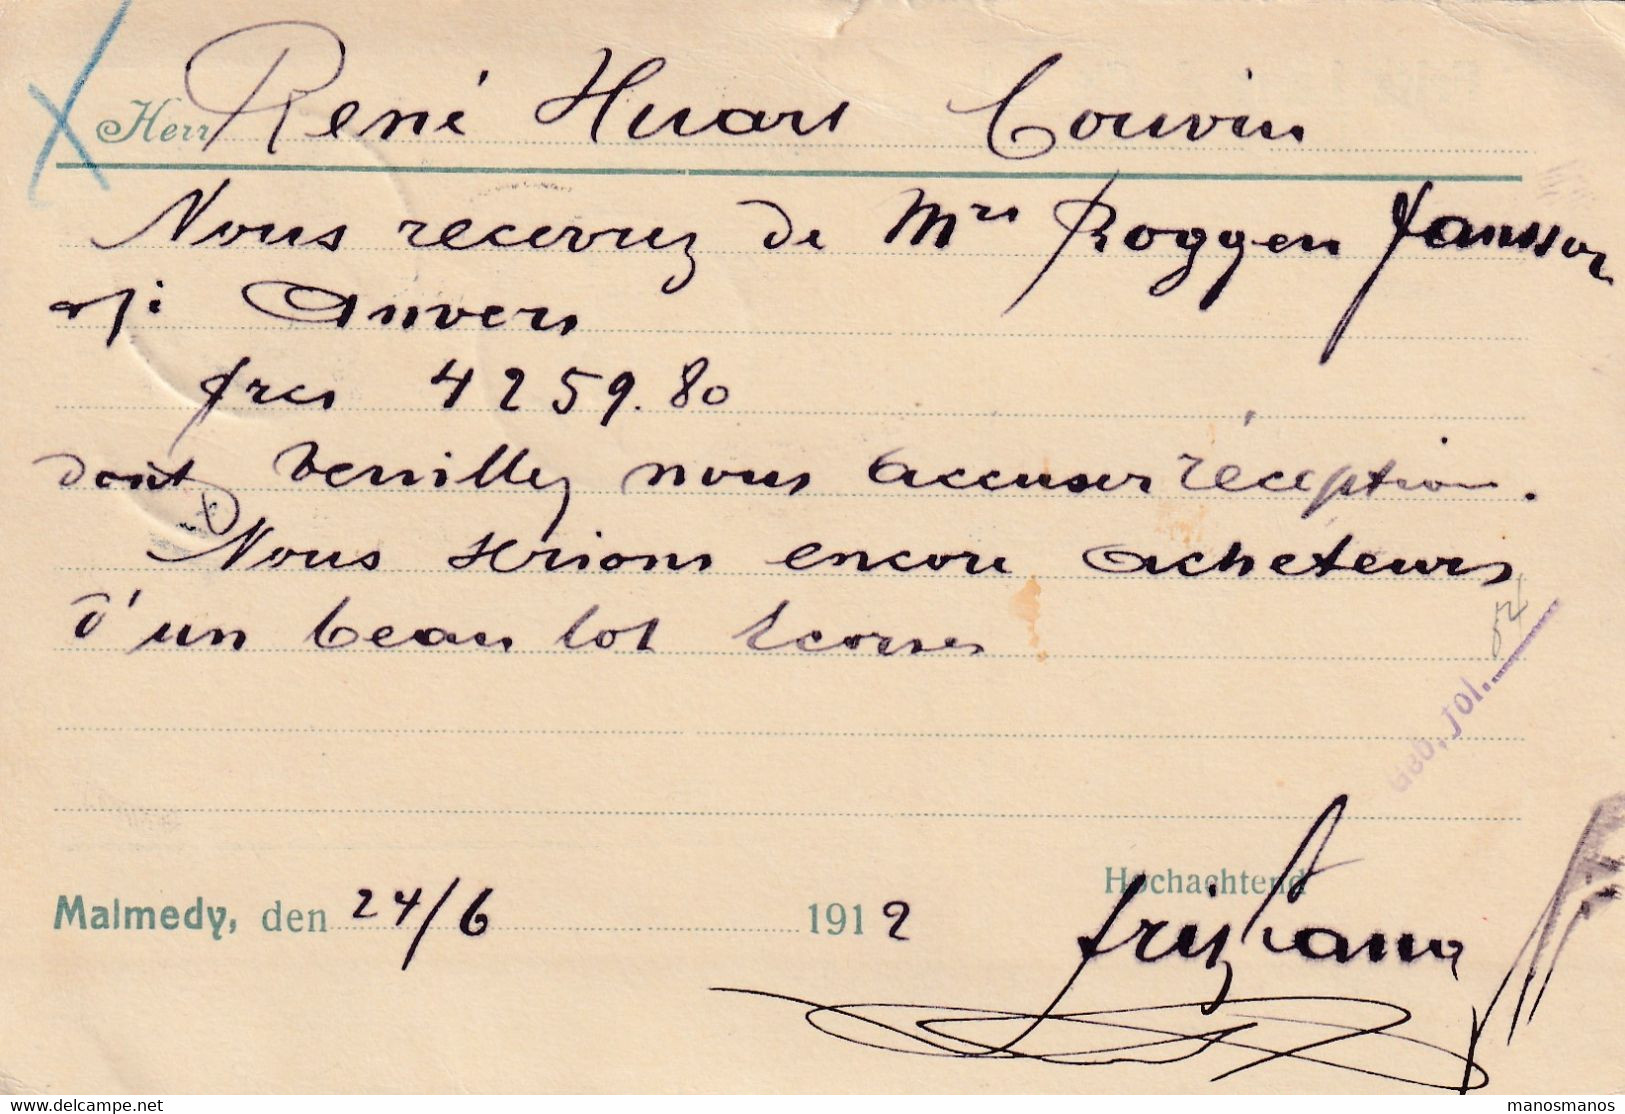 Herr René Huart Couvin
Nous recevrez de Mrs Roggen Janssen
Anvers
frcs 4259.80
dont veuillez nous accuser réception.
Nous serions encore acheteurs
d'un beau lot écorces
54
Geb. Jol.
Hochachtend
Malmedy, den 24/6 1912
Fritz Lang
www.delcampe.net
manosmanos